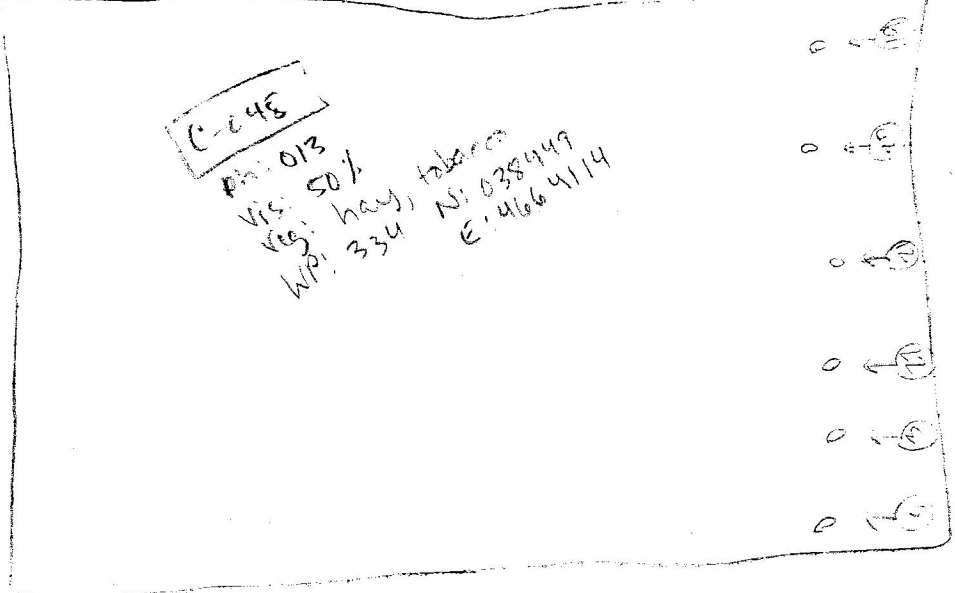 C-c45
Ph: 013
Vis: 50%
Veg: hay, tobacco
WP: 334 N: 038449
E: 4664114
0
0
0
0
0
0